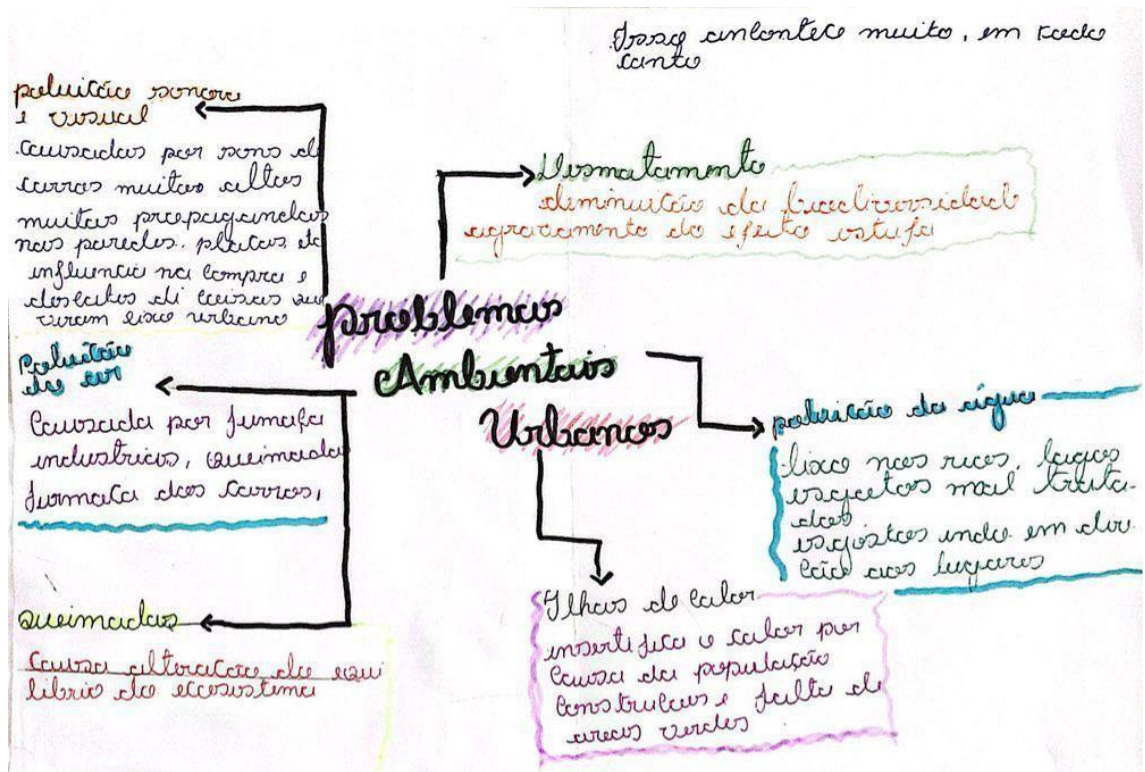 Issq anbontece muito, em todo
canto
poluicão sonora
e visual
causadas por sons de
carros muitos altos
muitas propagandas
nas paredes, placas etc
influencia na compra e
descartes di coisas que
viram lixo urbano
Desmatamento
diminuicão da biodiversidade
agravamento do efeito estufa
problemas
Ambientais
Urbanos
Poluicão
do ar
Causada por fumaça
industrias, queimadas
fumaça dos carros,
poluicão da água
lixo nos rios, lagos
esgotos mal trata-
dos
esgostos indo em dire
cão aos lugares
queimadas
Causa alteracão do equi
librio do ecosistema
Ilhas de calor
insertifica o calor por
causa da população
construcoes e falta de
areas verdes